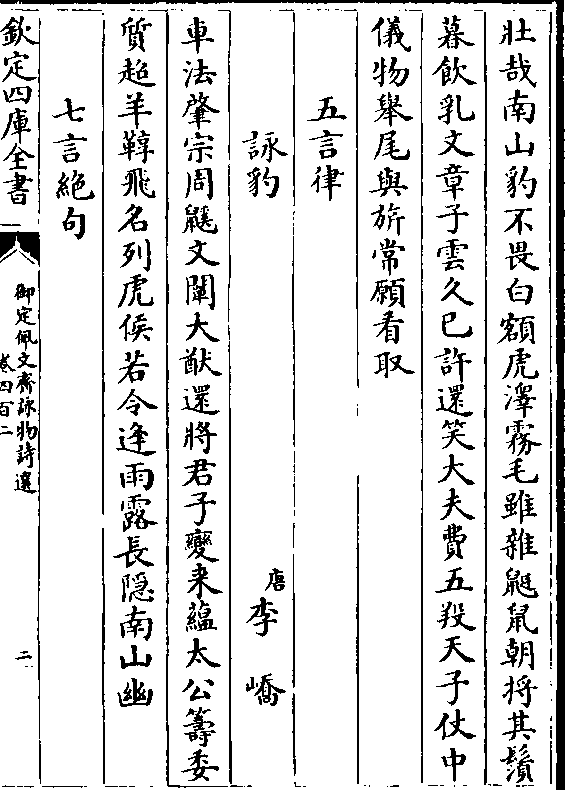 壮哉南山豹不畏白額虎澤霧毛雖雜鼮鼠朝捋其鬚
暮飲乳文章子雲久已許還笑大夫費五羖天子仗中
儀物舉尾與旂常願看取
五言律
詠豹 唐 李嶠
車法肇宗周鼷文闡大猷還將君子變来藴太公籌委
質超羊鞟飛名列虎侯若令逢雨露長隠南山幽
七言絶句
欽定四庫全書
御定佩文齋詠物詩選
卷四百二
二